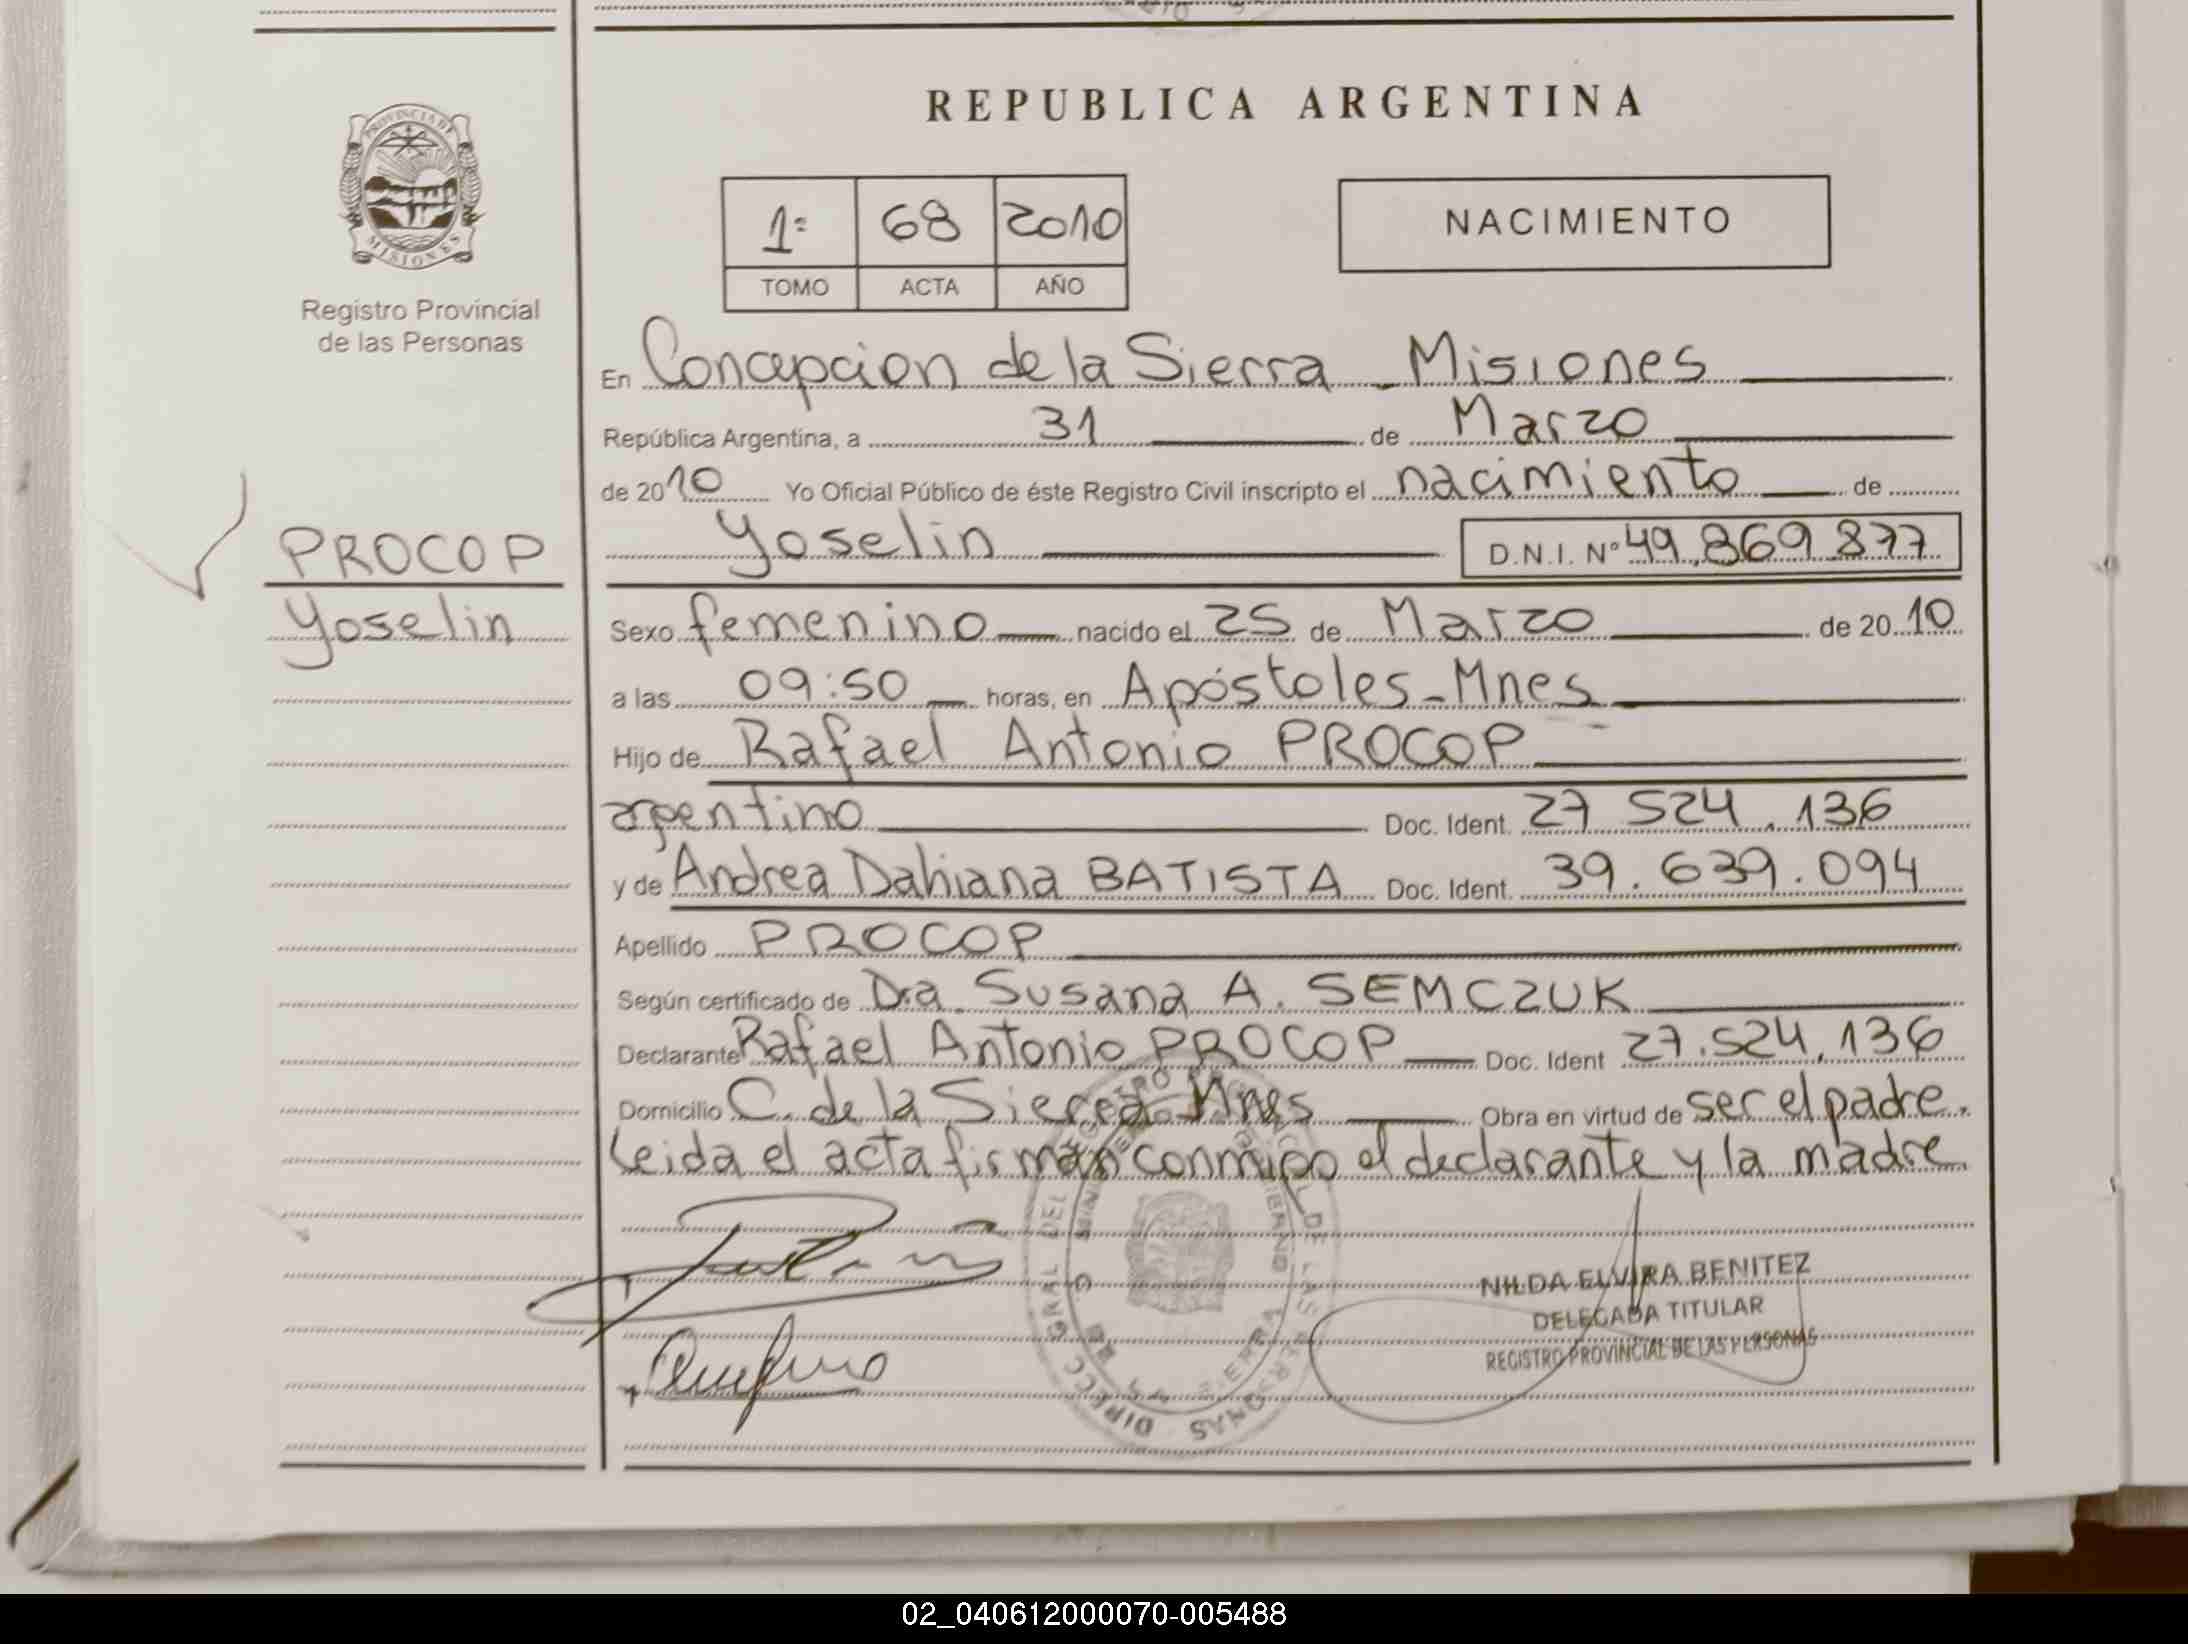 REPUBLICA ARGENTINA
PROVINCIA DE
MISIONES
Registro Provincial
de las Personas
1º 68 2010
TOMO ACTA AÑO
NACIMIENTO
En Concepcion de la Sierra - Misiones
República Argentina, a 31 de Marzo
de 2010 Yo Oficial Público de éste Registro Civil inscripto el nacimiento de
Yoselin D.N.I. Nº 49.869.877
PROCOP
Yoselin
Sexo femenino nacido el 25 de Marzo de 2010
a las 09:50 horas, en Apóstoles - Mnes
Hijo de Rafael Antonio PROCOP
argentino Doc. Ident. 27 524.136
y de Andrea Dahiana BATISTA Doc. Ident. 39.639.094
Apellido PROCOP
Según certificado de Dra. Susana A. SEMCZUK
Declarante Rafael Antonio PROCOP Doc. Ident 27.524.136
Domicilio C. de la Sierra Mnes Obra en virtud de ser el padre.
Leida el acta firman conmigo el declarante y la madre
NILDA ELVIRA BENITEZ
DELEGADA TITULAR
REGISTRO PROVINCIAL DE LAS PERSONAS
02_040612000070-005488